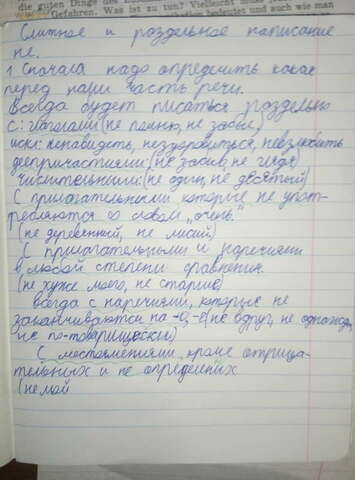 die guten Dinge des
Gefahren. Was ist zu tun? Vielleicht
bedeutet und auch wie man
Слитное и раздельное написание
не.
1. Сначала надо определить какая
перед нами часть речи.
Всегда будет писаться раздельно
С: глаголами (не помню, не забыв,
искл: ненавидеть, нездоровиться, невзлюбить
деепричастиями: (не забыв, не глядя)
числительными: (не один, не десятый)
С прилагательными которые не упот-
ребляются со словом "очень"
(не деревенный, не лисий)
С прилагательными и наречиями
в любой степени сравнения.
(не хуже моего, не старше)
всегда с наречиями, которые не
заканчиваются на -о, -е (не вдруг, не однажды,
не по-товарищески)
С местоимениями, кроме отрица-
тельных и не определённых
(не мой